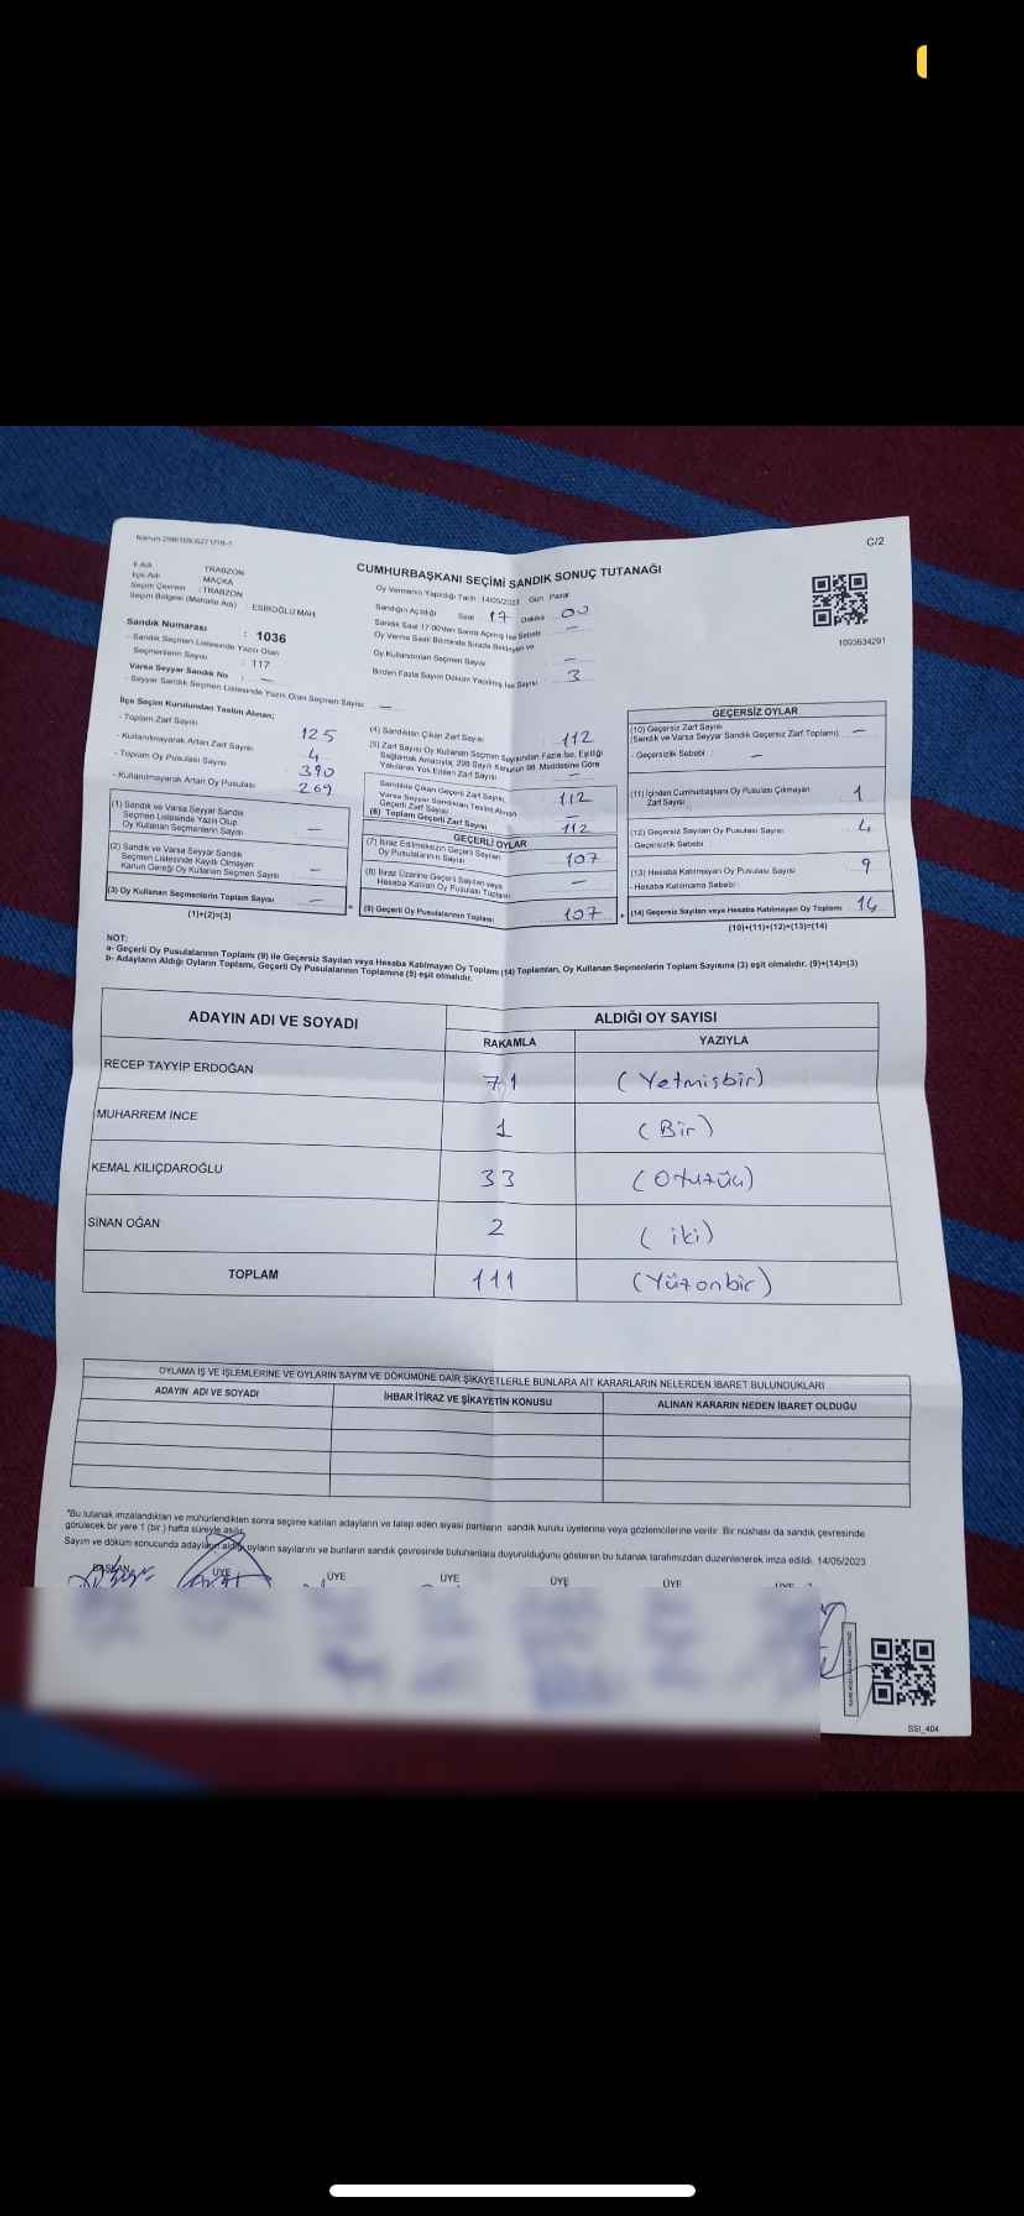 C/2
İl Adı TRABZON
İlçe Adı MAÇKA
Seçim Çevresi : TRABZON
Seçim Bölgesi (Mahalle Adı) ESİROĞLU MAH.
CUMHURBAŞKANI SEÇİMİ SANDIK SONUÇ TUTANAĞI
Oy Vermenin Yapıldığı Tarih: 14/05/2023 Gün: Pazar
Sandığın Açıldığı Saat 17 Dakika 00
Sandık Saat 17.00'den Sonra Açılmış İse Sebebi —
Oy Verme Saati Bitiminde Sırada Bekleyen ve
Oy Kullandırılan Seçmen Sayısı —
Birden Fazla Sayım Döküm Yapılmış İse Sayısı 3
1093634291
Sandık Numarası : 1036
- Sandık Seçmen Listesinde Yazılı Olan
Seçmenlerin Sayısı : 117
Varsa Seyyar Sandık No : —
- Seyyar Sandık Seçmen Listesinde Yazılı Olan Seçmen Sayısı —
İlçe Seçim Kurulundan Teslim Alınan;
- Toplam Zarf Sayısı 125
- Kullanılmayarak Artan Zarf Sayısı 4
- Toplam Oy Pusulası Sayısı 390
- Kullanılmayarak Artan Oy Pusulası 269
(1) Sandık ve Varsa Seyyar Sandık
Seçmen Listesinde Yazılı Olup
Oy Kullanan Seçmenlerin Sayısı —
(2) Sandık ve Varsa Seyyar Sandık
Seçmen Listesinde Kayıtlı Olmayan
Kanun Gereği Oy Kullanan Seçmen Sayısı —
(3) Oy Kullanan Seçmenlerin Toplam Sayısı —
(1)+(2)=(3)
(4) Sandıktan Çıkan Zarf Sayısı 112
(5) Zarf Sayısı Oy Kullanan Seçmen Sayısından Fazla İse, Eşitliği
Sağlamak Amacıyla, 298 Sayılı Kanunun 98. Maddesine Göre
Yakılarak Yok Edilen Zarf Sayısı —
Sandıkta Çıkan Geçerli Zarf Sayısı 112
Varsa Seyyar Sandıktan Teslim Alınan
Geçerli Zarf Sayısı —
(6) Toplam Geçerli Zarf Sayısı 112
GEÇERLİ OYLAR
(7) İtiraz Edilmeksizin Geçerli Sayılan
Oy Pusulalarının Sayısı 107
(8) İtiraz Üzerine Geçerli Sayılan veya
Hesaba Katılan Oy Pusulası Toplamı —
(9) Geçerli Oy Pusulalarının Toplamı 107
GEÇERSİZ OYLAR
(10) Geçersiz Zarf Sayısı
(Sandık ve Varsa Seyyar Sandık Geçersiz Zarf Toplamı) —
- Geçersizlik Sebebi : —
(11) İçinden Cumhurbaşkanı Oy Pusulası Çıkmayan
Zarf Sayısı 1
(12) Geçersiz Sayılan Oy Pusulası Sayısı 4
- Geçersizlik Sebebi
(13) Hesaba Katılmayan Oy Pusulası Sayısı 9
- Hesaba Katılmama Sebebi
(14) Geçersiz Sayılan veya Hesaba Katılmayan Oy Toplamı 14
(10)+(11)+(12)+(13)=(14)
NOT:
a- Geçerli Oy Pusulalarının Toplamı (9) ile Geçersiz Sayılan veya Hesaba Katılmayan Oy Toplamı (14) Toplamları, Oy Kullanan Seçmenlerin Toplam Sayısına (3) eşit olmalıdır. (9)+(14)=(3)
b- Adayların Aldığı Oyların Toplamı, Geçerli Oy Pusulalarının Toplamına (9) eşit olmalıdır.
ADAYIN ADI VE SOYADI ALDIĞI OY SAYISI
RAKAMLA YAZIYLA
RECEP TAYYİP ERDOĞAN 71 (Yetmişbir)
MUHARREM İNCE 1 (Bir)
KEMAL KILIÇDAROĞLU 33 (Otuzüç)
SİNAN OĞAN 2 (iki)
TOPLAM 111 (Yüzonbir)
OYLAMA İŞ VE İŞLEMLERİNE VE OYLARIN SAYIM VE DÖKÜMÜNE DAİR ŞİKAYETLERLE BUNLARA AİT KARARLARIN NELERDEN İBARET BULUNDUKLARI
ADAYIN ADI VE SOYADI İHBAR İTİRAZ VE ŞİKAYETİN KONUSU ALINAN KARARIN NEDEN İBARET OLDUĞU
*Bu tutanak imzalandıktan ve mühürlendikten sonra seçime katılan adayların ve talep eden siyasi partilerin sandık kurulu üyelerine veya gözlemcilerine verilir. Bir nüshası da sandık çevresinde
görülecek bir yere 1 (bir) hafta süreyle asılır.
Sayım ve döküm sonucunda adayların aldığı oyların sayılarını ve bunların sandık çevresinde bulunanlara duyurulduğunu gösteren bu tutanak tarafımızdan düzenlenerek imza edildi. 14/05/2023
BAŞKAN ÜYE ÜYE ÜYE ÜYE ÜYE ÜYE
SSI_404